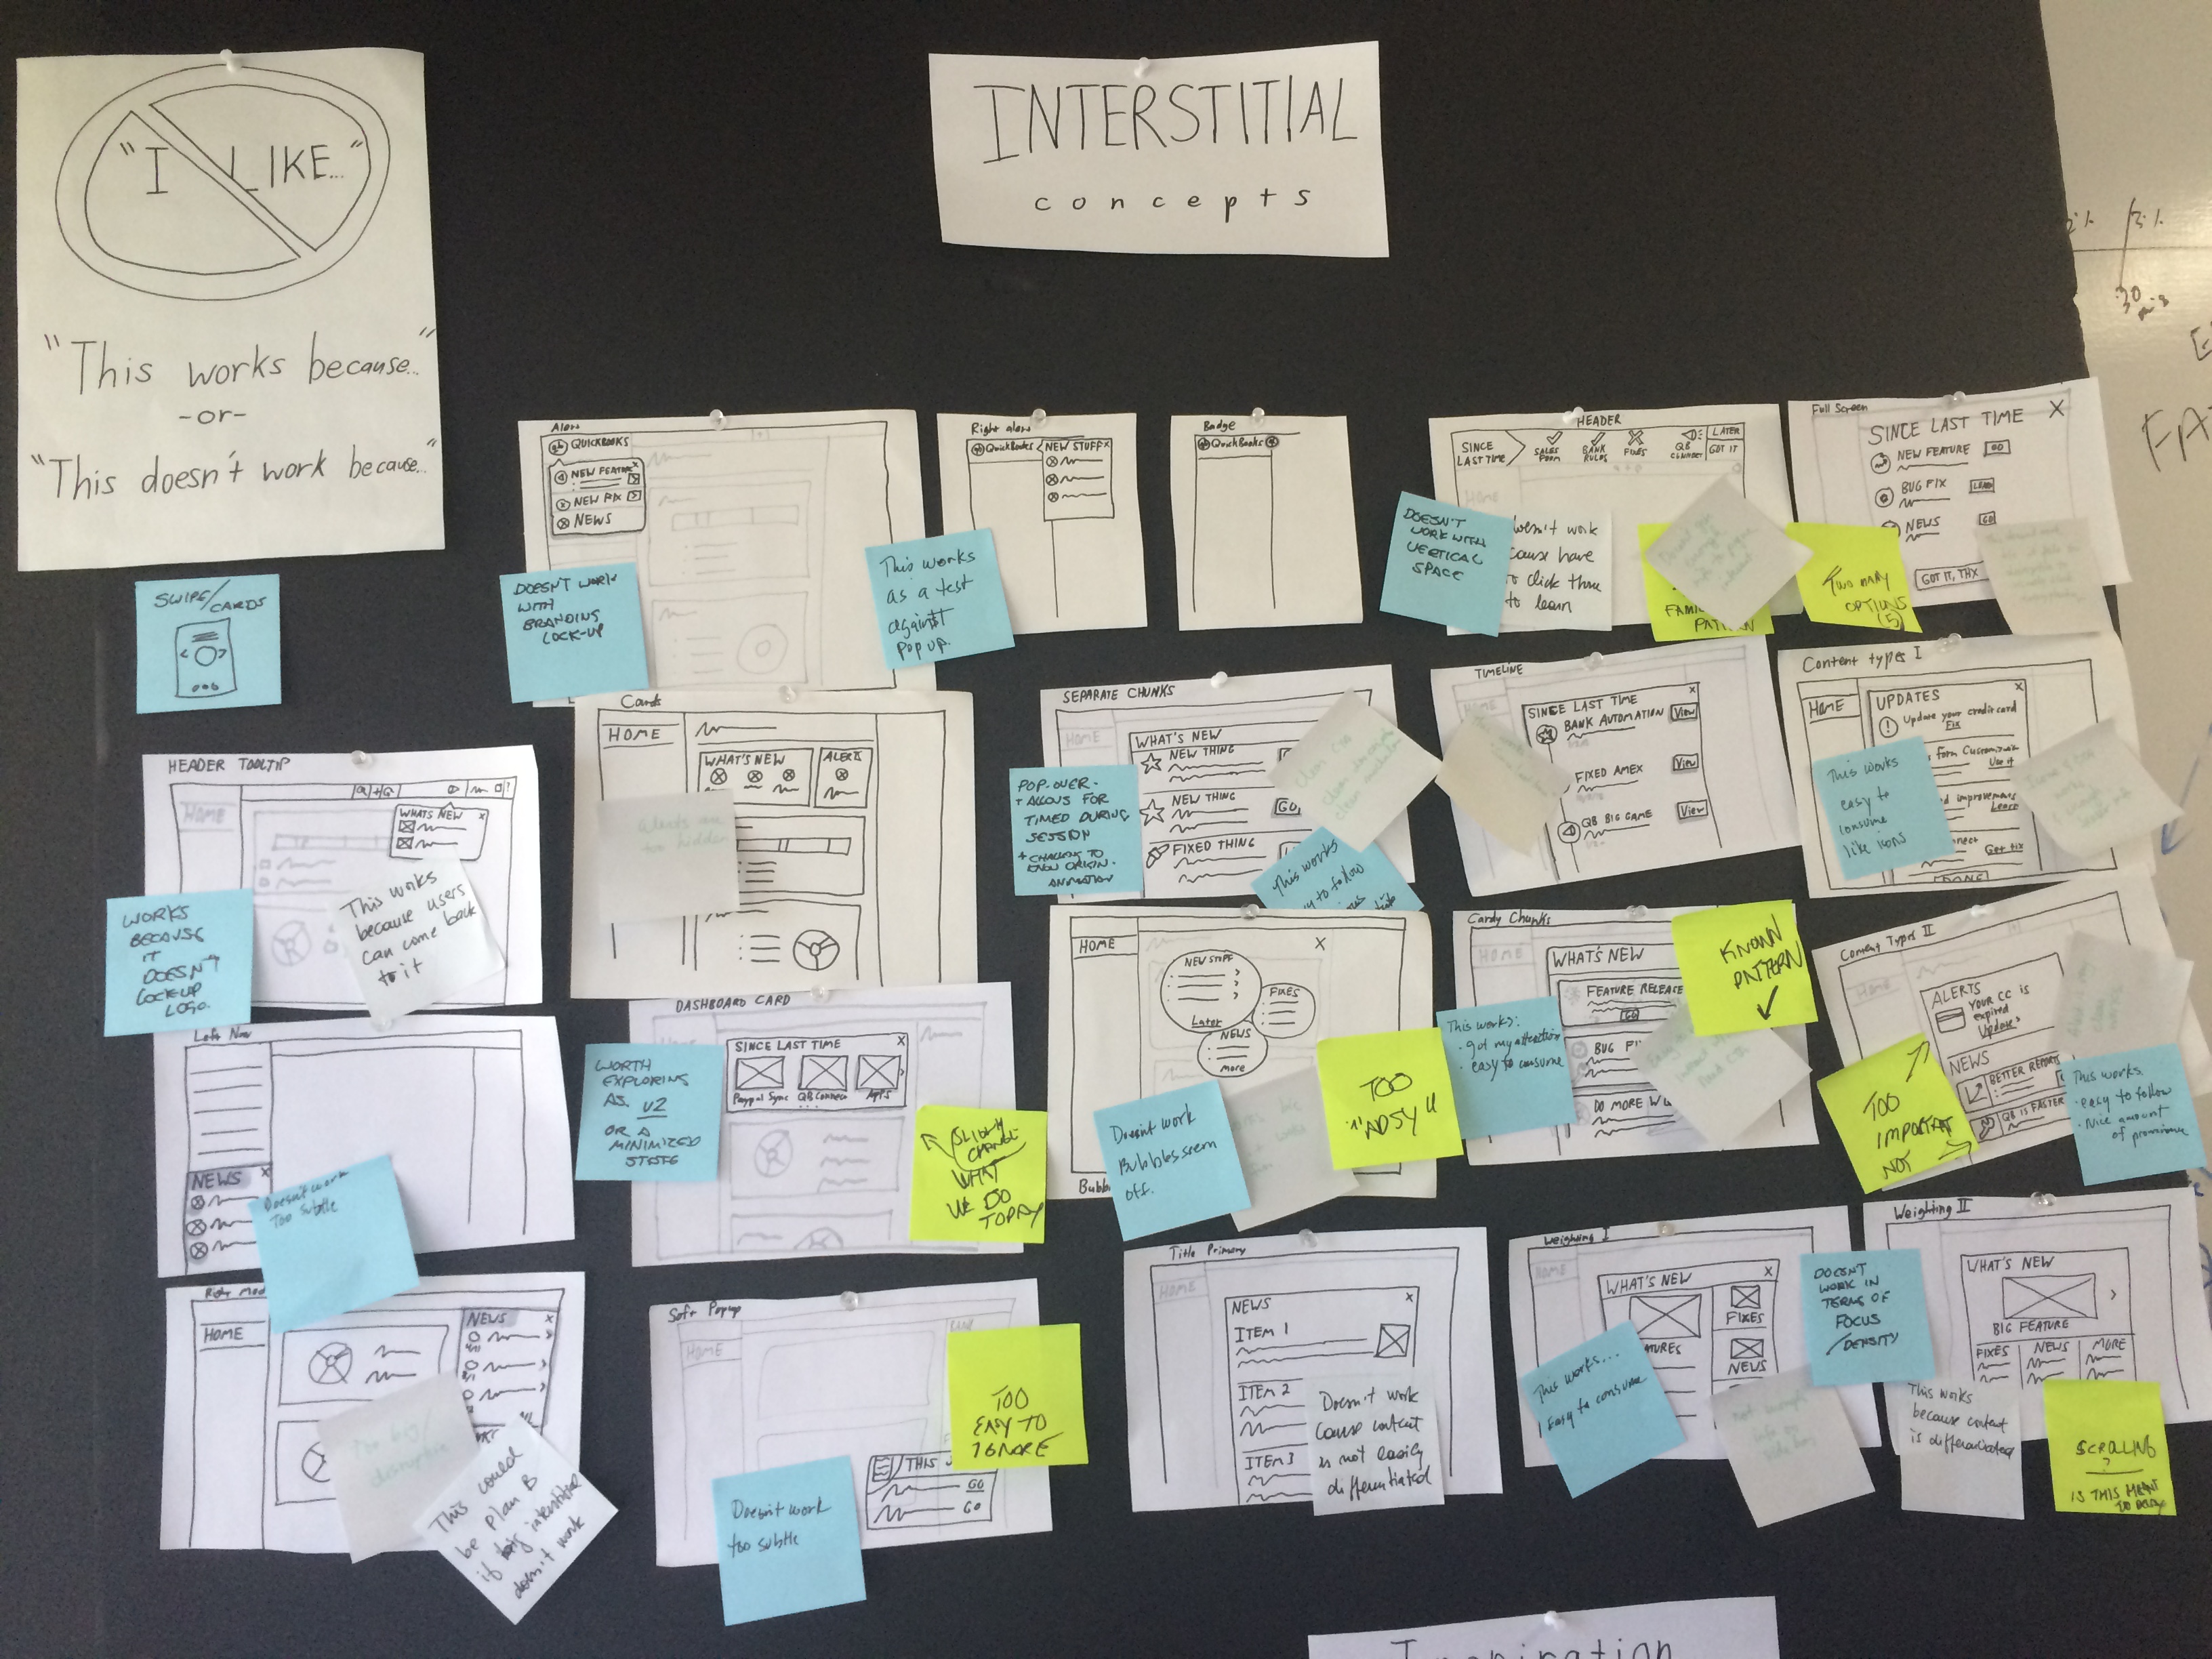 "I LIKE..."
"This works because..."
-or-
"This doesn't work because..."
INTERSTITIAL
concepts
SWIPE/
CARDS
Alert
QUICKBOOKS
NEW FEATURE
NEW FIX
NEWS
DOESN'T WORK
WITH
BRANDING
LOCK-UP
Right alert
QuickBooks
NEW STUFF X
This works
as a test
against
pop up.
Badge
QuickBooks
HEADER
SINCE
LAST TIME
SALES
FORM
BANK
RULES
FIXES
QB
CONNECT
LATER
GOT IT
DOESN'T
WORK WITH
VERTICAL
SPACE
doesn't work
cause have
to click thru
to learn
PATTERN
Full Screen
SINCE LAST TIME X
NEW FEATURE GO
BUG FIX LEARN
NEWS GO
GOT IT, THX
TWO MANY
OPTIONS
(5)
HEADER TOOLTIP
HOME
WHATS NEW X
WORKS
BECAUSE
IT
DOESN'T
LOCKUP
LOGO.
This works
because users
can come back
to it
Cards
HOME
WHAT'S NEW
ALERTS
alerts are
too hidden
SEPARATE CHUNKS
HOME
WHAT'S NEW
NEW THING
NEW THING GO
FIXED THING
POP-OVER.
+ ALLOWS FOR
TIMED DURING
SESSION
+ CHALLENG TO
KNOW ORIGIN.
ANIMATION
This works
to follow
TIMELINE
HOME
SINCE LAST TIME X
BANK AUTOMATION View
FIXED AMEX View
QB BIG GAME View
Content types I
HOME
UPDATES X
Update your credit card
Fix
Use it
improvements
Learn
Get tix
DONE
This works
easy to
consume
like icons
Left Nav
NEWS X
Doesn't work
Too subtle
DASHBOARD CARD
SINCE LAST TIME X
Paypal Sync QB Connect Apps
WORTH
EXPLORING
AS V2
OR A
MINIMIZED
STATE
SLIGHT
CHANGE
WHAT
WE DO
TODAY
HOME
X
NEW STUFF
Later
FIXES
NEWS
more
Doesn't work
Bubbles seem
off.
TOO
"ADSY"
Cardy Chunks
HOME
WHAT'S NEW
FEATURE RELEASE
GO
BUG FI
DO MORE W
This works:
- got my attention
- easy to consume
KNOWN
PATTERN
Content Types II
ALERTS
YOUR CC is
expired
Update
NEWS
BETTER REPORTS
QB IS FASTER
TOO
IMPORTANT
NOT
This works
- easy to follow
- Nice amount
of prominence
HOME
NEWS X
This could
be plan B
if big interstitial
doesn't work
Soft Popup
HOME
THIS
GO
GO
Doesn't work
too subtle
TOO
EASY TO
IGNORE
Title Primary
HOME
NEWS X
ITEM 1
ITEM 2
ITEM 3
Doesn't work
cause content
is not easily
differentiated
Weighting I
HOME
WHAT'S NEW X
FIXES
ATURES
NEWS
This works...
Easy to consume
DOESN'T
WORK IN
TERMS OF
FOCUS
/DENSITY
Weighting II
WHAT'S NEW
BIG FEATURE
FIXES NEWS MORE
This works
because content
is differentiated
SCROLLING
?
IS THIS MEANT
TO